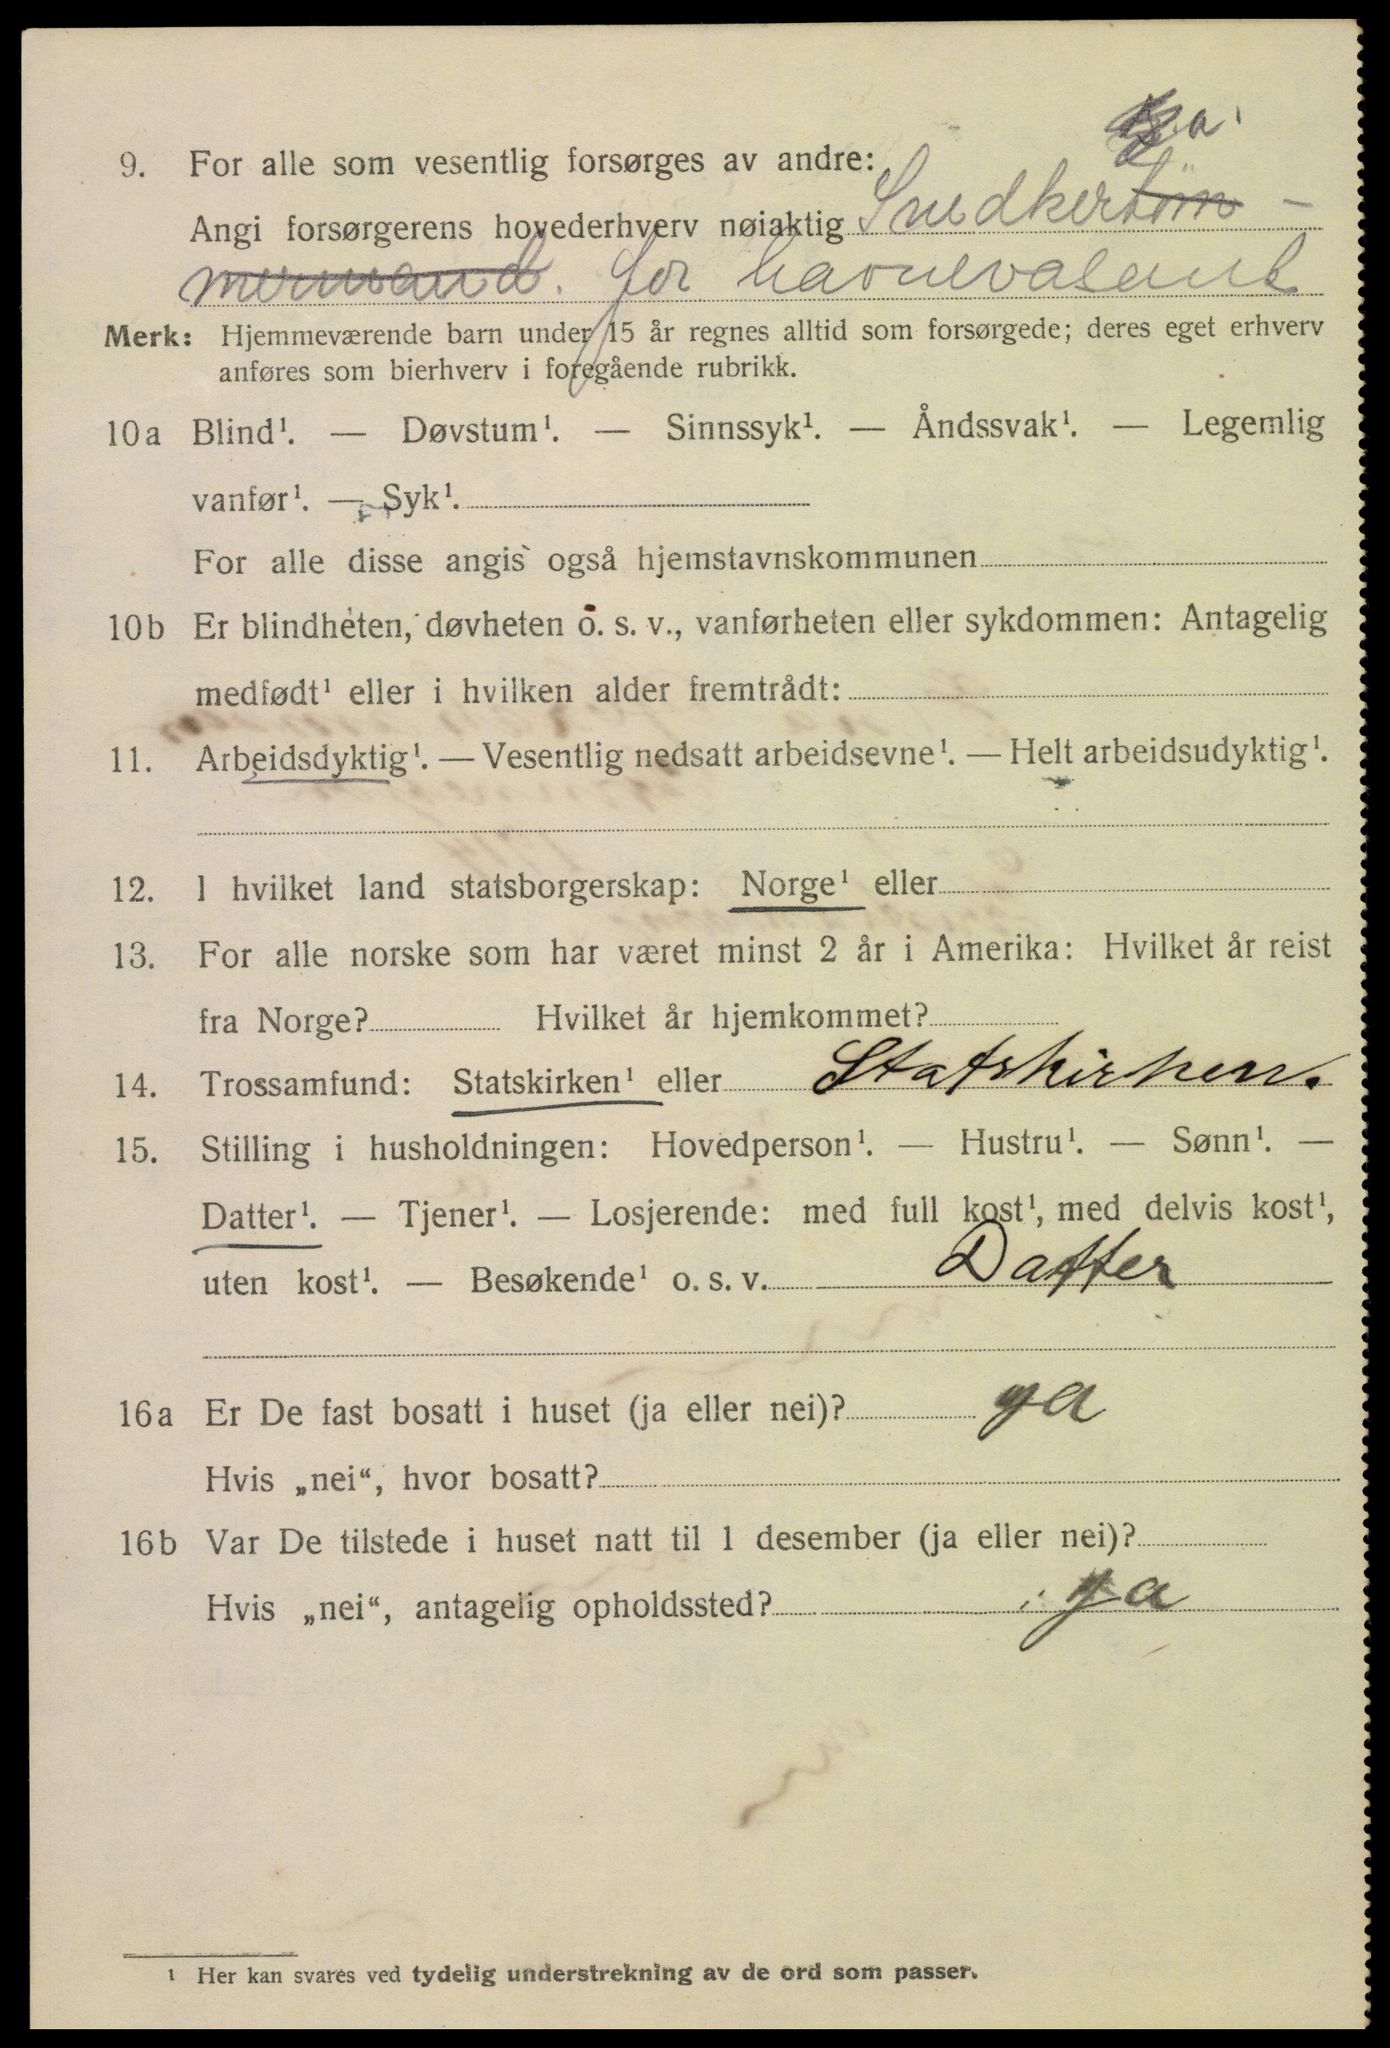 a.
9. For alle som vesentlig forsørges av andre:
Angi forsørgerens hovederhverv nøiaktig Snedker tøm-
mermand. for havnevæsent
Merk: Hjemmeværende barn under 15 år regnes alltid som forsørgede; deres eget erhverv
anføres som bierhverv i foregående rubrikk.
10a Blind¹. — Døvstum¹. — Sinnssyk¹. — Åndssvak¹. — Legemlig
vanfør¹. — Syk¹.
For alle disse angis også hjemstavnskommunen
10b Er blindheten, døvheten o. s. v., vanførheten eller sykdommen: Antagelig
medfødt¹ eller i hvilken alder fremtrådt:
11. Arbeidsdyktig¹. — Vesentlig nedsatt arbeidsevne¹. — Helt arbeidsudyktig¹.
12. I hvilket land statsborgerskap: Norge¹ eller
13. For alle norske som har været minst 2 år i Amerika: Hvilket år reist
fra Norge? Hvilket år hjemkommet?
14. Trossamfund: Statskirken¹ eller Statskirken.
15. Stilling i husholdningen: Hovedperson¹. — Hustru¹. — Sønn¹. —
Datter¹. — Tjener¹. — Losjerende: med full kost¹, med delvis kost¹,
uten kost¹. — Besøkende¹ o. s. v. Datter
16a Er De fast bosatt i huset (ja eller nei)? ya
Hvis „nei“, hvor bosatt?
16b Var De tilstede i huset natt til 1 desember (ja eller nei)?
Hvis „nei“, antagelig opholdssted? ya
¹ Her kan svares ved tydelig understrekning av de ord som passer.